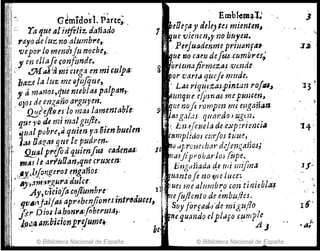 Gemidosl. Parte,
Ya que al infeliz, dañado
rayo de luz no alumbre,
ve por lo menos su noche,
y en ella se confunde.
mi ciega en mi culpa
haze la luz me ofusque,
y à manos, que nieblas palpan,
ojos de engaño arguyen.
Què esto es lo mas lamentable
que yo de mi mal guste,
qual pobre, à quien ya bien huelen
las llagas que le pudren.
Qual preso à quien sus cadenas
mas le arrullan, que cruxen:
ay, lisongeros engaños
ay, amargura dulce.
Ay, viciosa costumbre
quan falsas aprehensiones introduces,
ser Dios la honra, soberuia,
loca ambicion presume,
Emblema I.
3
belleza y deleytes mienten,
que vienen, y no huyen.
Persuadenme priuanças
que no caen de sus cumbres,
fortuna firmezas vende
por varta que se mude.
Las riquezas pintan rosas,
aunque espinas me puncen,
que no se rompen me engañan
las galas quando lugen.
En escuela de experiencia
cumplidos cursos tuue,
no aprouechar desengaños;
mas sì prouar los supe.
Engañada de mi misma
quanto se no que luzes
pues me alumbro con tinieblas
me sustento de embustes.
Soy forçado de mi gusto
que quando el plaço cumple
7
8
9
10
11
12
13
14
15
16
A 3
© Biblioteca Nacional de España
© Biblioteca Nacional de España